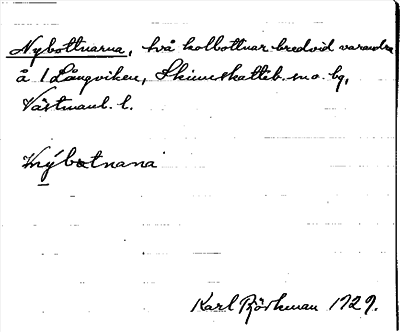 Nybottnarna, två kolbottnar bredvid varandra
å 1 Långviken, Skinnskatteb. sn o. bg,
Västmanl. l.
nýbotnana
Karl Björkman 1929.